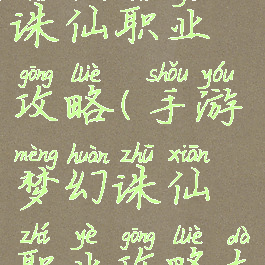 诛仙职业
gōng lüè shǒu yóu
攻略(手游
mèng huàn zhū xiān
梦幻诛仙
zhí yè gōng lüè dà
职业攻略大